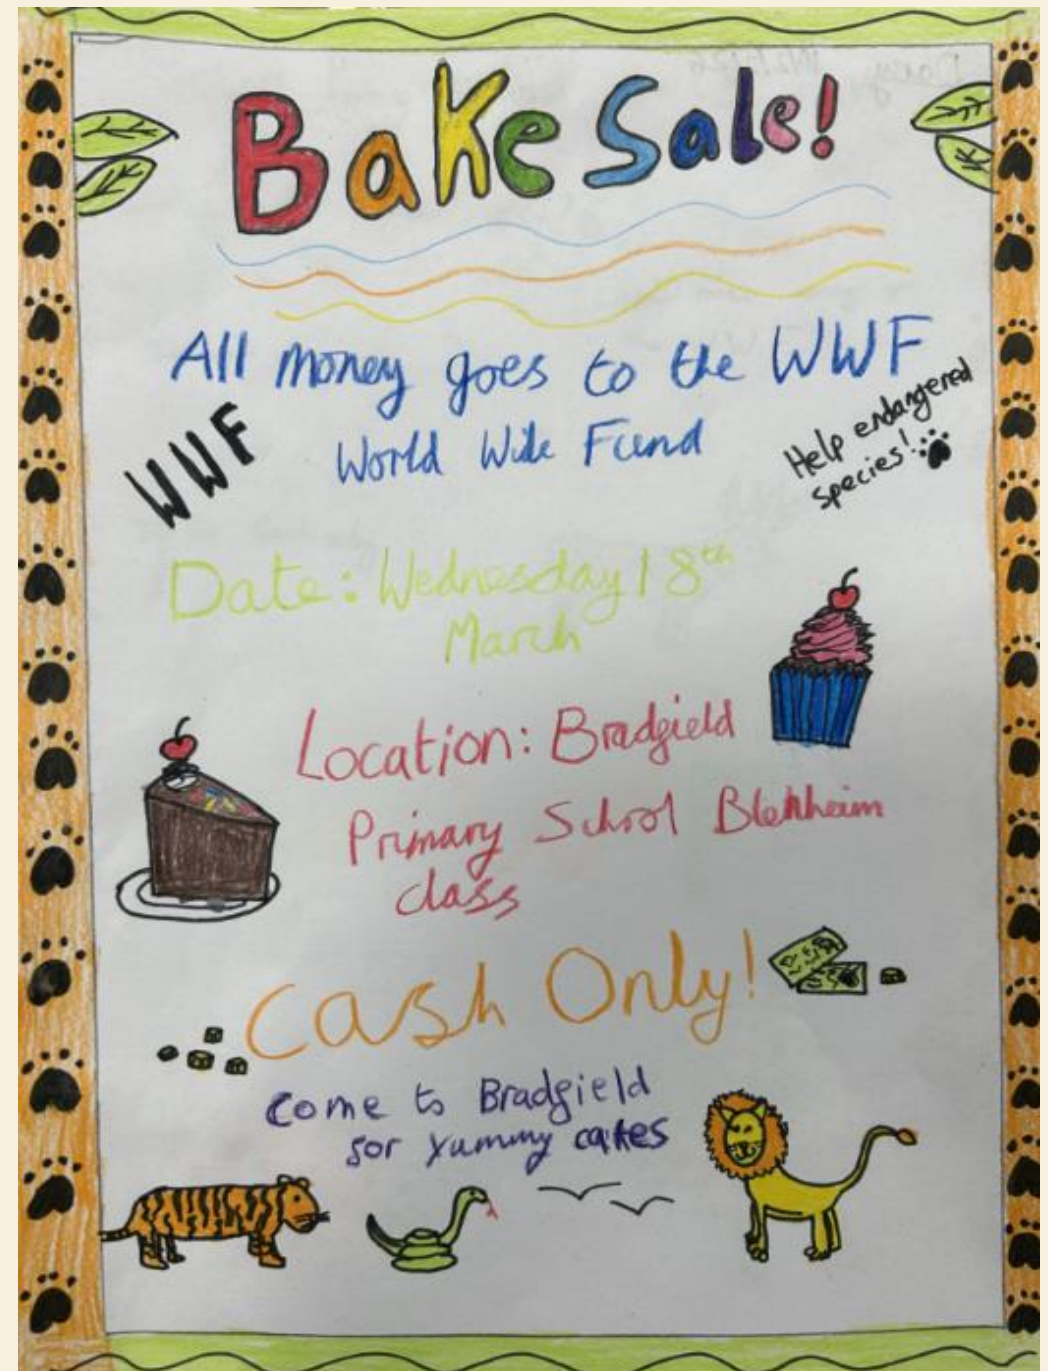 Bake Sale!
All money goes to the WWF
World Wide Fund
WWF
Help endangered
species!
Date: Wednesday 18th
March
Location: Bradfield
Primary School Blenheim
class
Cash Only!
Come to Bradfield
for yummy cakes